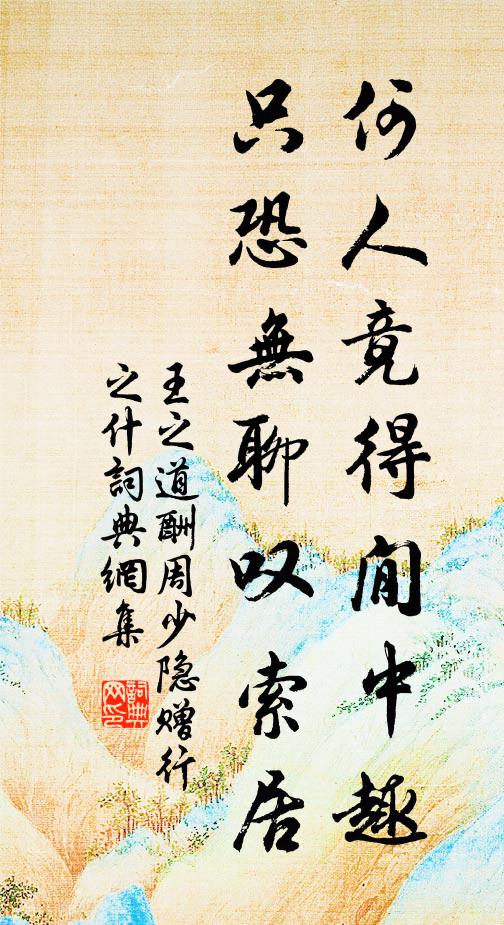 何人竟得閒中趣
只恐無聊叹索居
王之道酬周少隐赠行
之什詞典網集
詞典網印